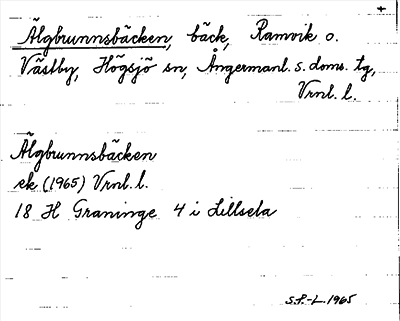 Älgbrunnsbäcken, bäck, Ramvik o.
Västby, Högsjö sn, Ångermanl. s. doms. tg,
Vrnl. l.
Älgbrunnsbäcken
ek (1965) Vrnl. l.
18 H Graninge 4 i Lillsela
S.P.-L. 1965